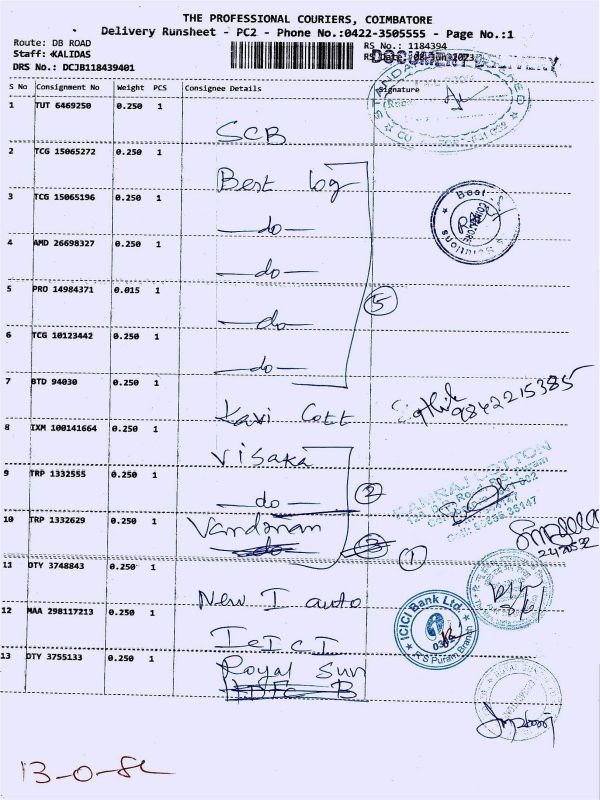 THE PROFESSIONAL COURIERS, COIMBATORE
Delivery Runsheet - PC2 - Phone No.:0422-3505555 - Page No.:1
Route: DB ROAD
RS No.: 1184394
Staff: KALIDAS
DRS No.: DCJB118439401
S No Consignment No Weight PCS Consignee Details Signature
1 TUT 6469250 0.250 1 SCB
2 TCG 15065272 0.250 1 Best log
3 TCG 15065196 0.250 1 —do—
4 AMD 26698327 0.250 1 —do—
5 PRO 14984371 0.015 1 —do—
5
6 TCG 10123442 0.250 1 —do—
7 BTD 94030 0.250 1 Kavi Cott 9842215385
8 IXM 100141664 0.250 1 Visaka
9 TRP 1332555 0.250 1 —do— 2
10 TRP 1332629 0.250 1 Vandanan
do 3 1
11 DTY 3748843 0.250 1 New I auto
12 MAA 298117213 0.250 1 ICICI
ICICI Bank Ltd.
R S Puram Branch
13 DTY 3755133 0.250 1 Royal Sun
13-0-82